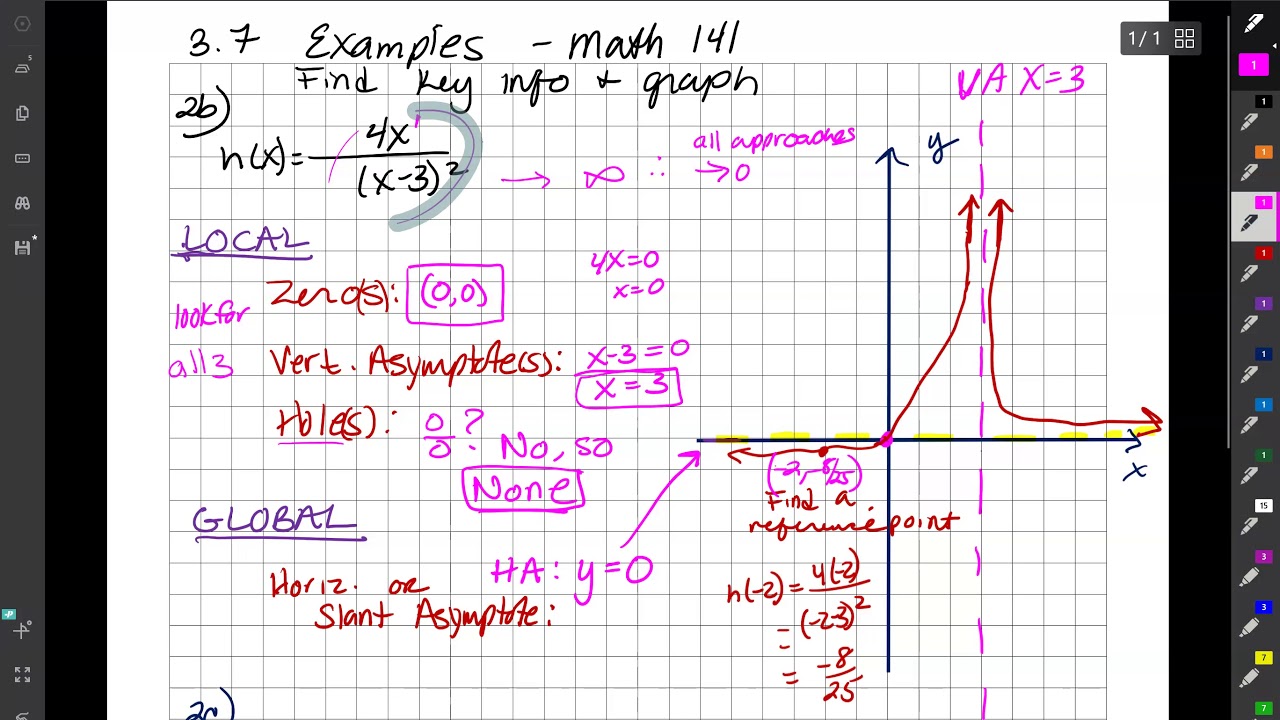 3.7 Examples - Math 141
Find key info + graph
1/1
VA x=3
2b)
h(x)= 4x / (x-3)²
1
→ ∞ ∴ all approaches
→0
y
LOCAL
look for
all 3
Zero(s): (0,0)
4x=0
x=0
Vert. Asymptote(s): x-3=0
x=3
Hole(s): 0/0? No, so
None
GLOBAL
Horiz. or
Slant Asymptote:
HA: y=0
x
(-2, -8/25)
Find a
reference point
h(-2) = 4(-2) / (-2-3)²
= -8/25
2a)
5
1
1
1
1
1
1
1
1
1
15
3
3
7
7